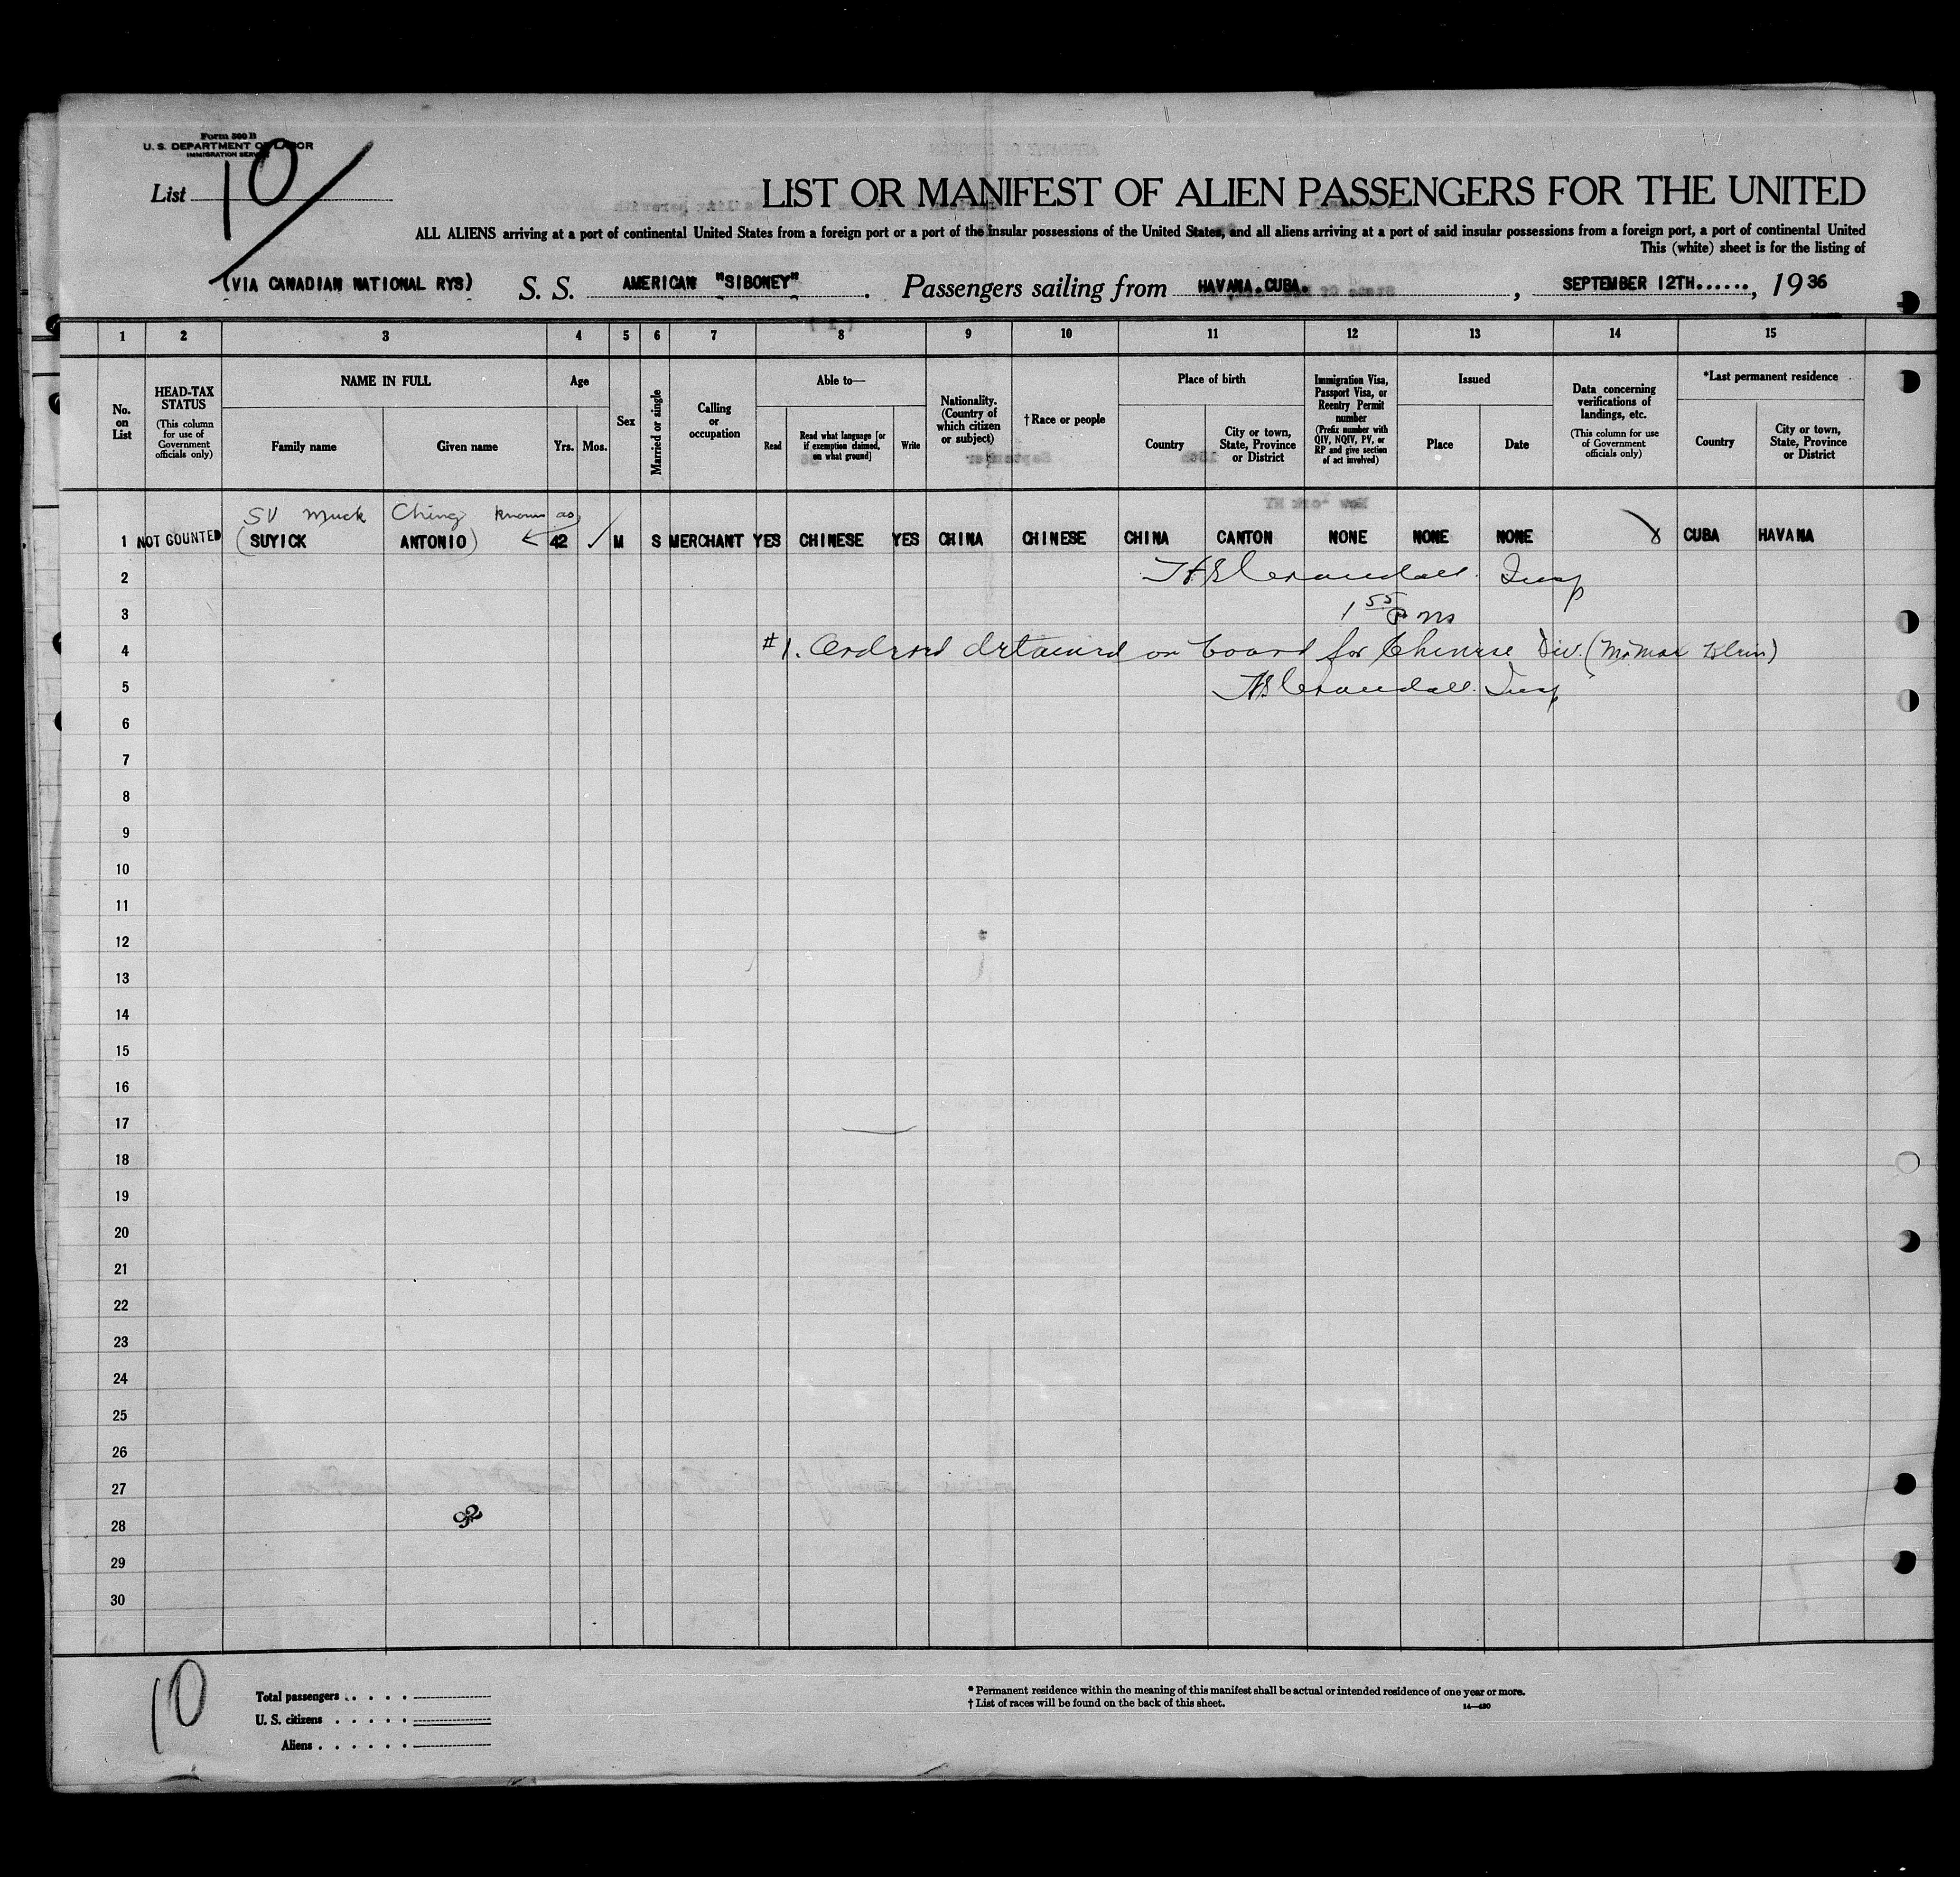 Form 500 B
U. S. DEPARTMENT OF LABOR
IMMIGRATION SERVICE
List 10
LIST OR MANIFEST OF ALIEN PASSENGERS FOR THE UNITED
ALL ALIENS arriving at a port of continental United States from a foreign port or a port of the insular possessions of the United States, and all aliens arriving at a port of said insular possessions from a foreign port, a port of continental United
This (white) sheet is for the listing of
(VIA CANADIAN NATIONAL RYS) S. S. AMERICAN "SIBONEY" Passengers sailing from HAVANA.CUBA. , SEPTEMBER 12TH......, 1936
1 2 3 4 5 6 7 8 9 10 11 12 13 14 15
No. on List
HEAD-TAX STATUS (This column for use of Government officials only)
NAME IN FULL
Family name
Given name
Age
Yrs. Mos.
Sex
Married or single
Calling or occupation
Able to—
Read
Read what language [or if exemption claimed, on what ground]
Write
Nationality. (Country of which citizen or subject)
†Race or people
Place of birth
Country
City or town, State, Province or District
Immigration Visa, Passport Visa, or Reentry Permit number (Prefix number with QIV, NQIV, PV, or RP and give section of act involved)
Issued
Place
Date
Data concerning verifications of landings, etc. (This column for use of Government officials only)
*Last permanent residence
Country
City or town, State, Province or District
SU Muck Ching known as
1 NOT COUNTED (SUYICK ANTONIO) 42 M S MERCHANT YES CHINESE YES CHINA CHINESE CHINA CANTON NONE NONE NONE CUBA HAVANA
2 Crandall Insp
3 1 55 P m
4 #1. Ordered detained on board for Chinese Div. (Mr Max Klein)
5 Crandall Insp
6
7
8
9
10
11
12
13
14
15
16
17
18
19
20
21
22
23
24
25
26
27
28
29
30
10
Total passengers . . . . .
U. S. citizens . . . . .
Aliens . . . . . .
* Permanent residence within the meaning of this manifest shall be actual or intended residence of one year or more.
† List of races will be found on the back of this sheet.
14—430